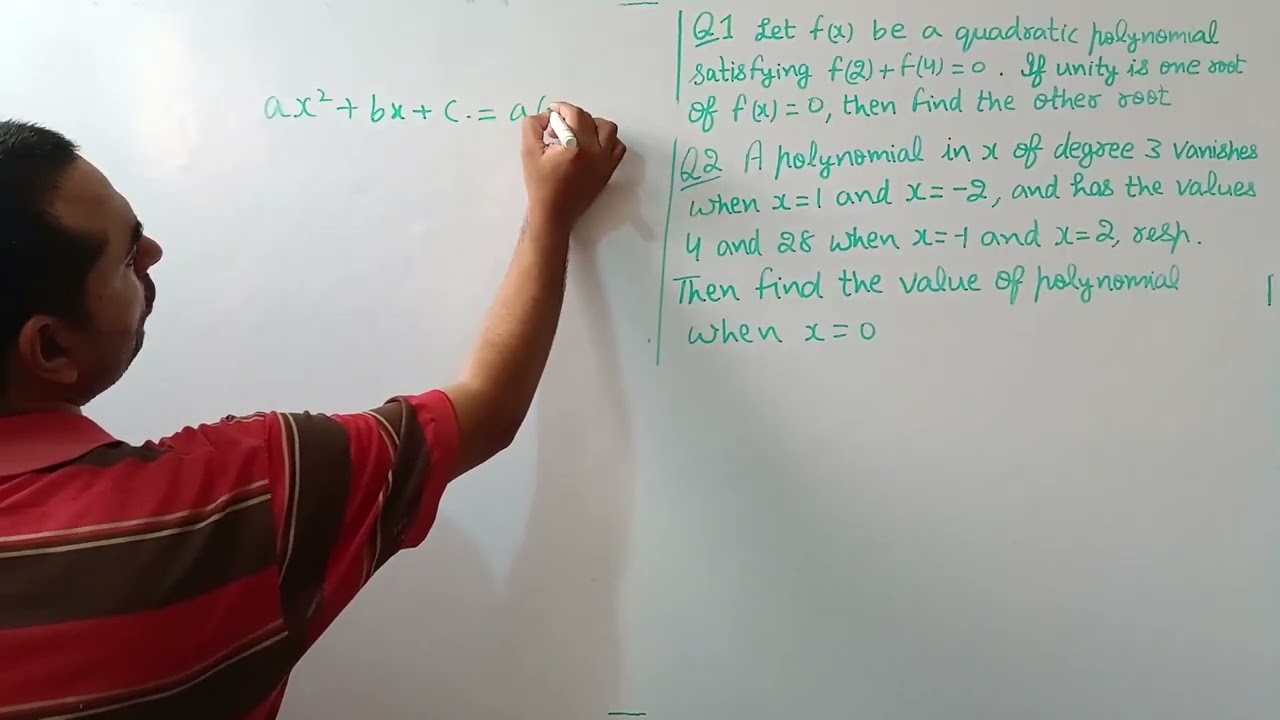 ax² + bx + c. = a(
Q1 Let f(x) be a quadratic polynomial
satisfying f(2) + f(4) = 0. If unity is one root
of f(x) = 0, then find the other root
Q2 A polynomial in x of degree 3 vanishes
when x = 1 and x = -2, and has the values
4 and 28 when x = -1 and x = 2, resp.
Then find the value of polynomial
when x = 0